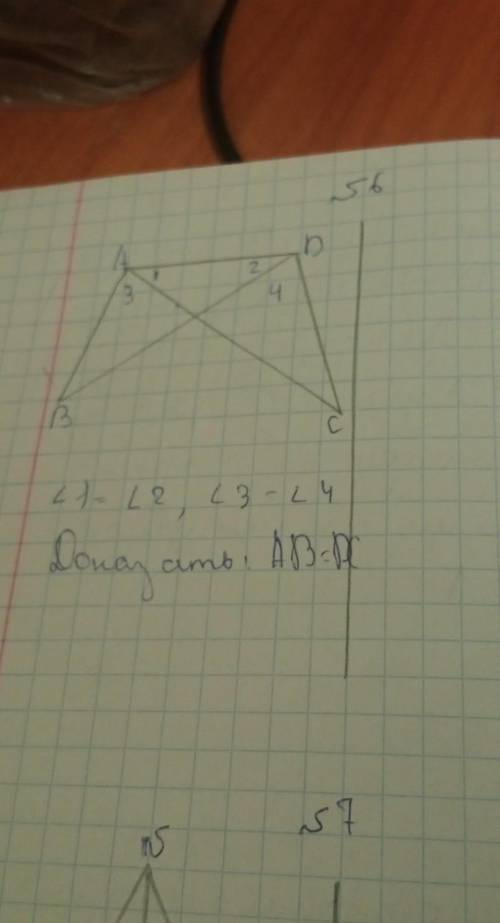 56
A D
1 2
3 4
B C
∠1 = ∠2, ∠3 = ∠4
Доказать: AB = DC
57